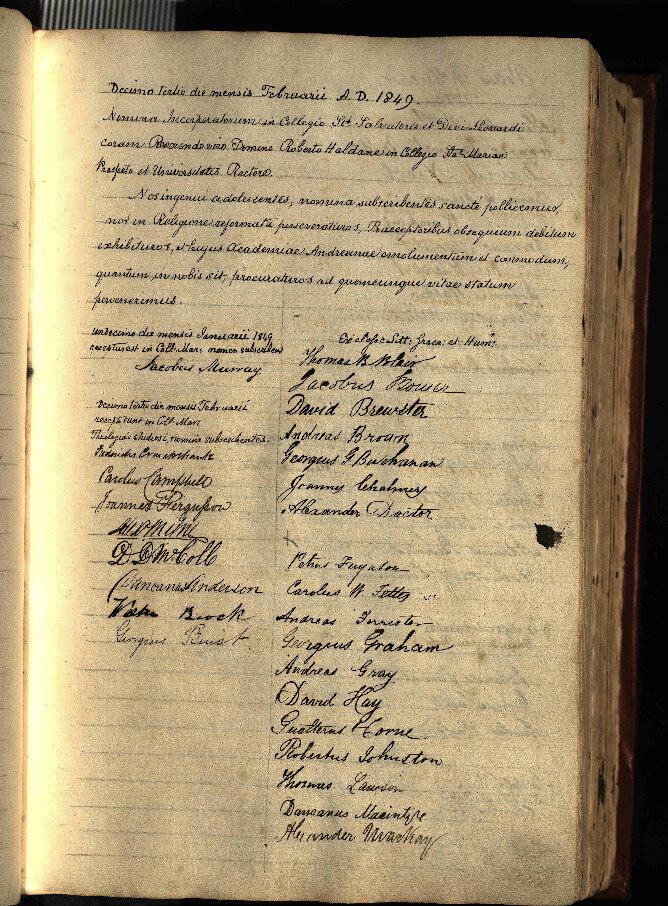 Decimo tertio die mensis Februarii A.D. 1849.
Nomina Incorporatorum in Collegio Sti Salvatoris et Divi Leonardi
coram Reverendo viro Domino Roberto Haldane in Collegio Stae Mariae
Praefecto et Universitatis Rectore.
Nos ingenui adolescentes, nomina subscribentes sanctè pollicemur,
nos in Religione reformata perseveraturos, Praeceptoribus obsequium debitum
exhibituros, et hujus Academiae Andreanae emolumentum et commodum,
quantum in nobis sit, procuraturos ad quemcunque vitae statum
pervenerimus.
undecimo die mensis Januarii 1849
receptus est in Coll. Mar. nomen subscribens
Jacobus Murray
Decimo tertio die mensis Februarii
recepti sunt in Coll. Mar.
Theologiae studiosi, nomina subscribentes.
Cruickshank
Carolus Campbell
Joannes Fergusson
D. D. McColl
Duncanus Anderson
Brock
Georgius Buist
Ex classe Litt: Graec: et Hum:
Thomas B. Blair
Jacobus
David Brewster
Andreas Brown
Georgius G Buchanan
Joannes Chalmers
Alexander Doctor
x
Petrus Ferguson
Carolus W.
Andreas Forrester
Georgius Graham
Andreas Gray
David Hay
Gualterus Horne
Robertus Johnston
Thomas Lawson
Duncanus Macintyre
Alexander Mackay